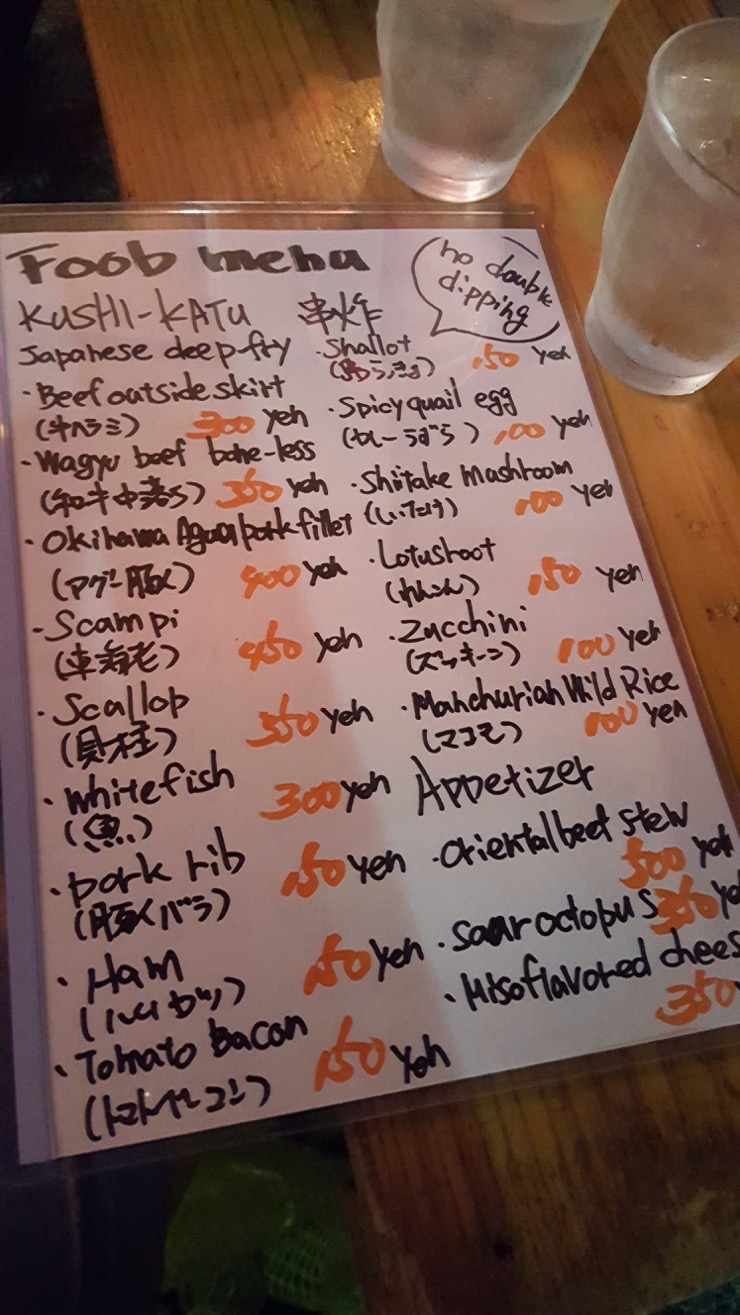 Foob menu
no double
dipping
KUSHI-KATU 串炸
Japanese deep-fry
・Beef outside skirt
(牛ハラミ) 300 yen
・Wagyu beef bone-less
(和牛中落ち) 350 yen
・Okinawa Aguu pork fillet
(アグー豚) 400 yen
・Scampi
(車海老) 450 yen
・Scallop
(貝柱) 350 yen
・White fish
(魚) 300 yen
・pork rib
(豚バラ) 150 yen
・Ham
(ハムカツ) 150 yen
・Tomato bacon
(トマトベーコン) 150 yen
・Shallot
150 yen
・Spicy quail egg
(カレーうずら) 100 yen
・Shiitake mashroom
(しいたけ) 100 yen
・Lotusroot
(れんこん) 150 yen
・Zucchini
(ズッキーニ) 100 yen
・Manchurian Wild Rice
(マコモ) 100 yen
Appetizer
・Oriental beef stew
500 yen
・Saur octopus 350 ye
・Misoflavored chees
350